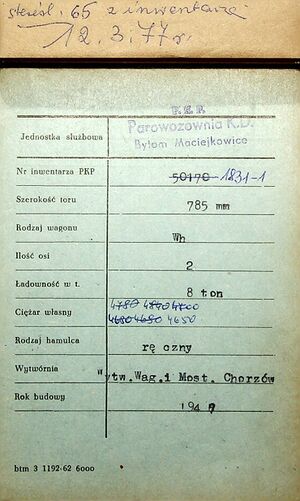 skreśl. 65 z inwentarza
12.3.77r.
P.K.P.
Jednostka służbowa Parowozownia K.D.
Bytom Maciejkowice
Nr inwentarza PKP 50170 1831-1
Szerokość toru 785 mm
Rodzaj wagonu Wh
Ilość osi 2
Ładowność w t. 8 ton
Ciężar własny 4780 4870 4700
4680 4690 4650
Rodzaj hamulca rę czny
Wytwórnia Wytw.Wag.i Most. Chorzów
Rok budowy 194
btm 3 1192-62 6000